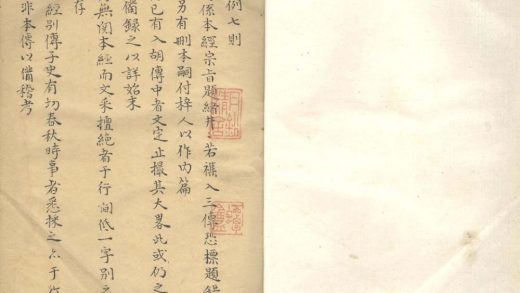 例七則
係本經宗旨題緒井若襍入三傳恐標題錯
另有刪本嗣付梓人以作內篇
已有入胡傳中者文定止撮其大畧此或仍之
備錄之以詳始末
無関本經而文采擅絕者于行間低一字別之
存
經別傳子史有切春秋時事者悉採之亦于行
非本傳以備稽考